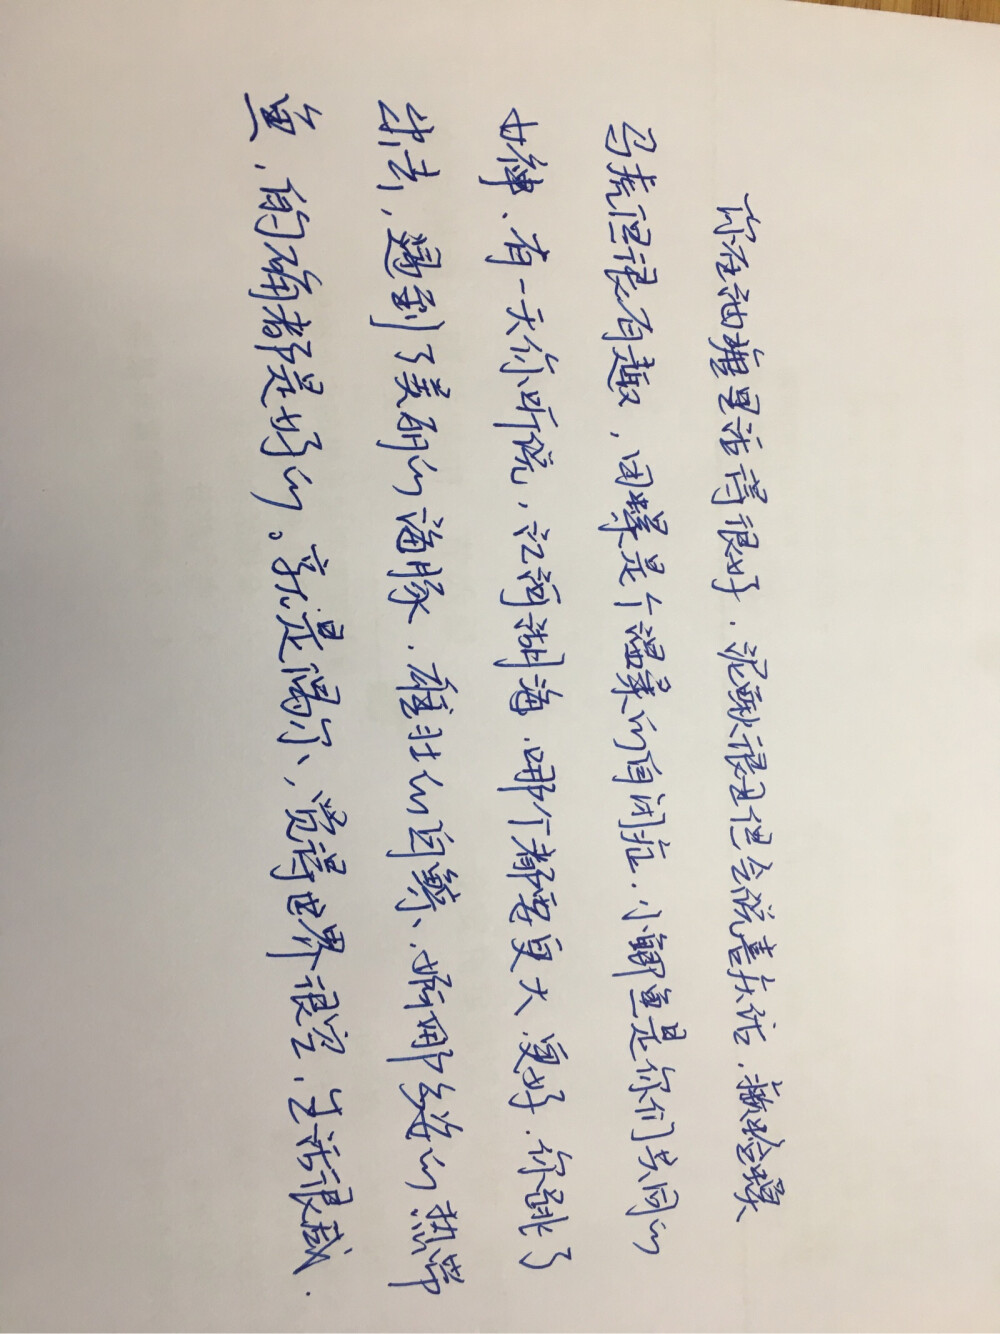 你在池塘里活得很好，泥鳅很丑但会说喜庆话，癞蛤蟆
马虎但很有趣，田螺是个温柔的自闭症，小鲫鱼是你们共同的
女神。有一天你听说，江河湖海，哪个都要更大，更好。你跳了
出去，遇到了美丽的海豚，雄壮的白鲸，婀娜多姿的热带
鱼，的确都是好的。就是偶尔，觉得世界很空，生活很咸。